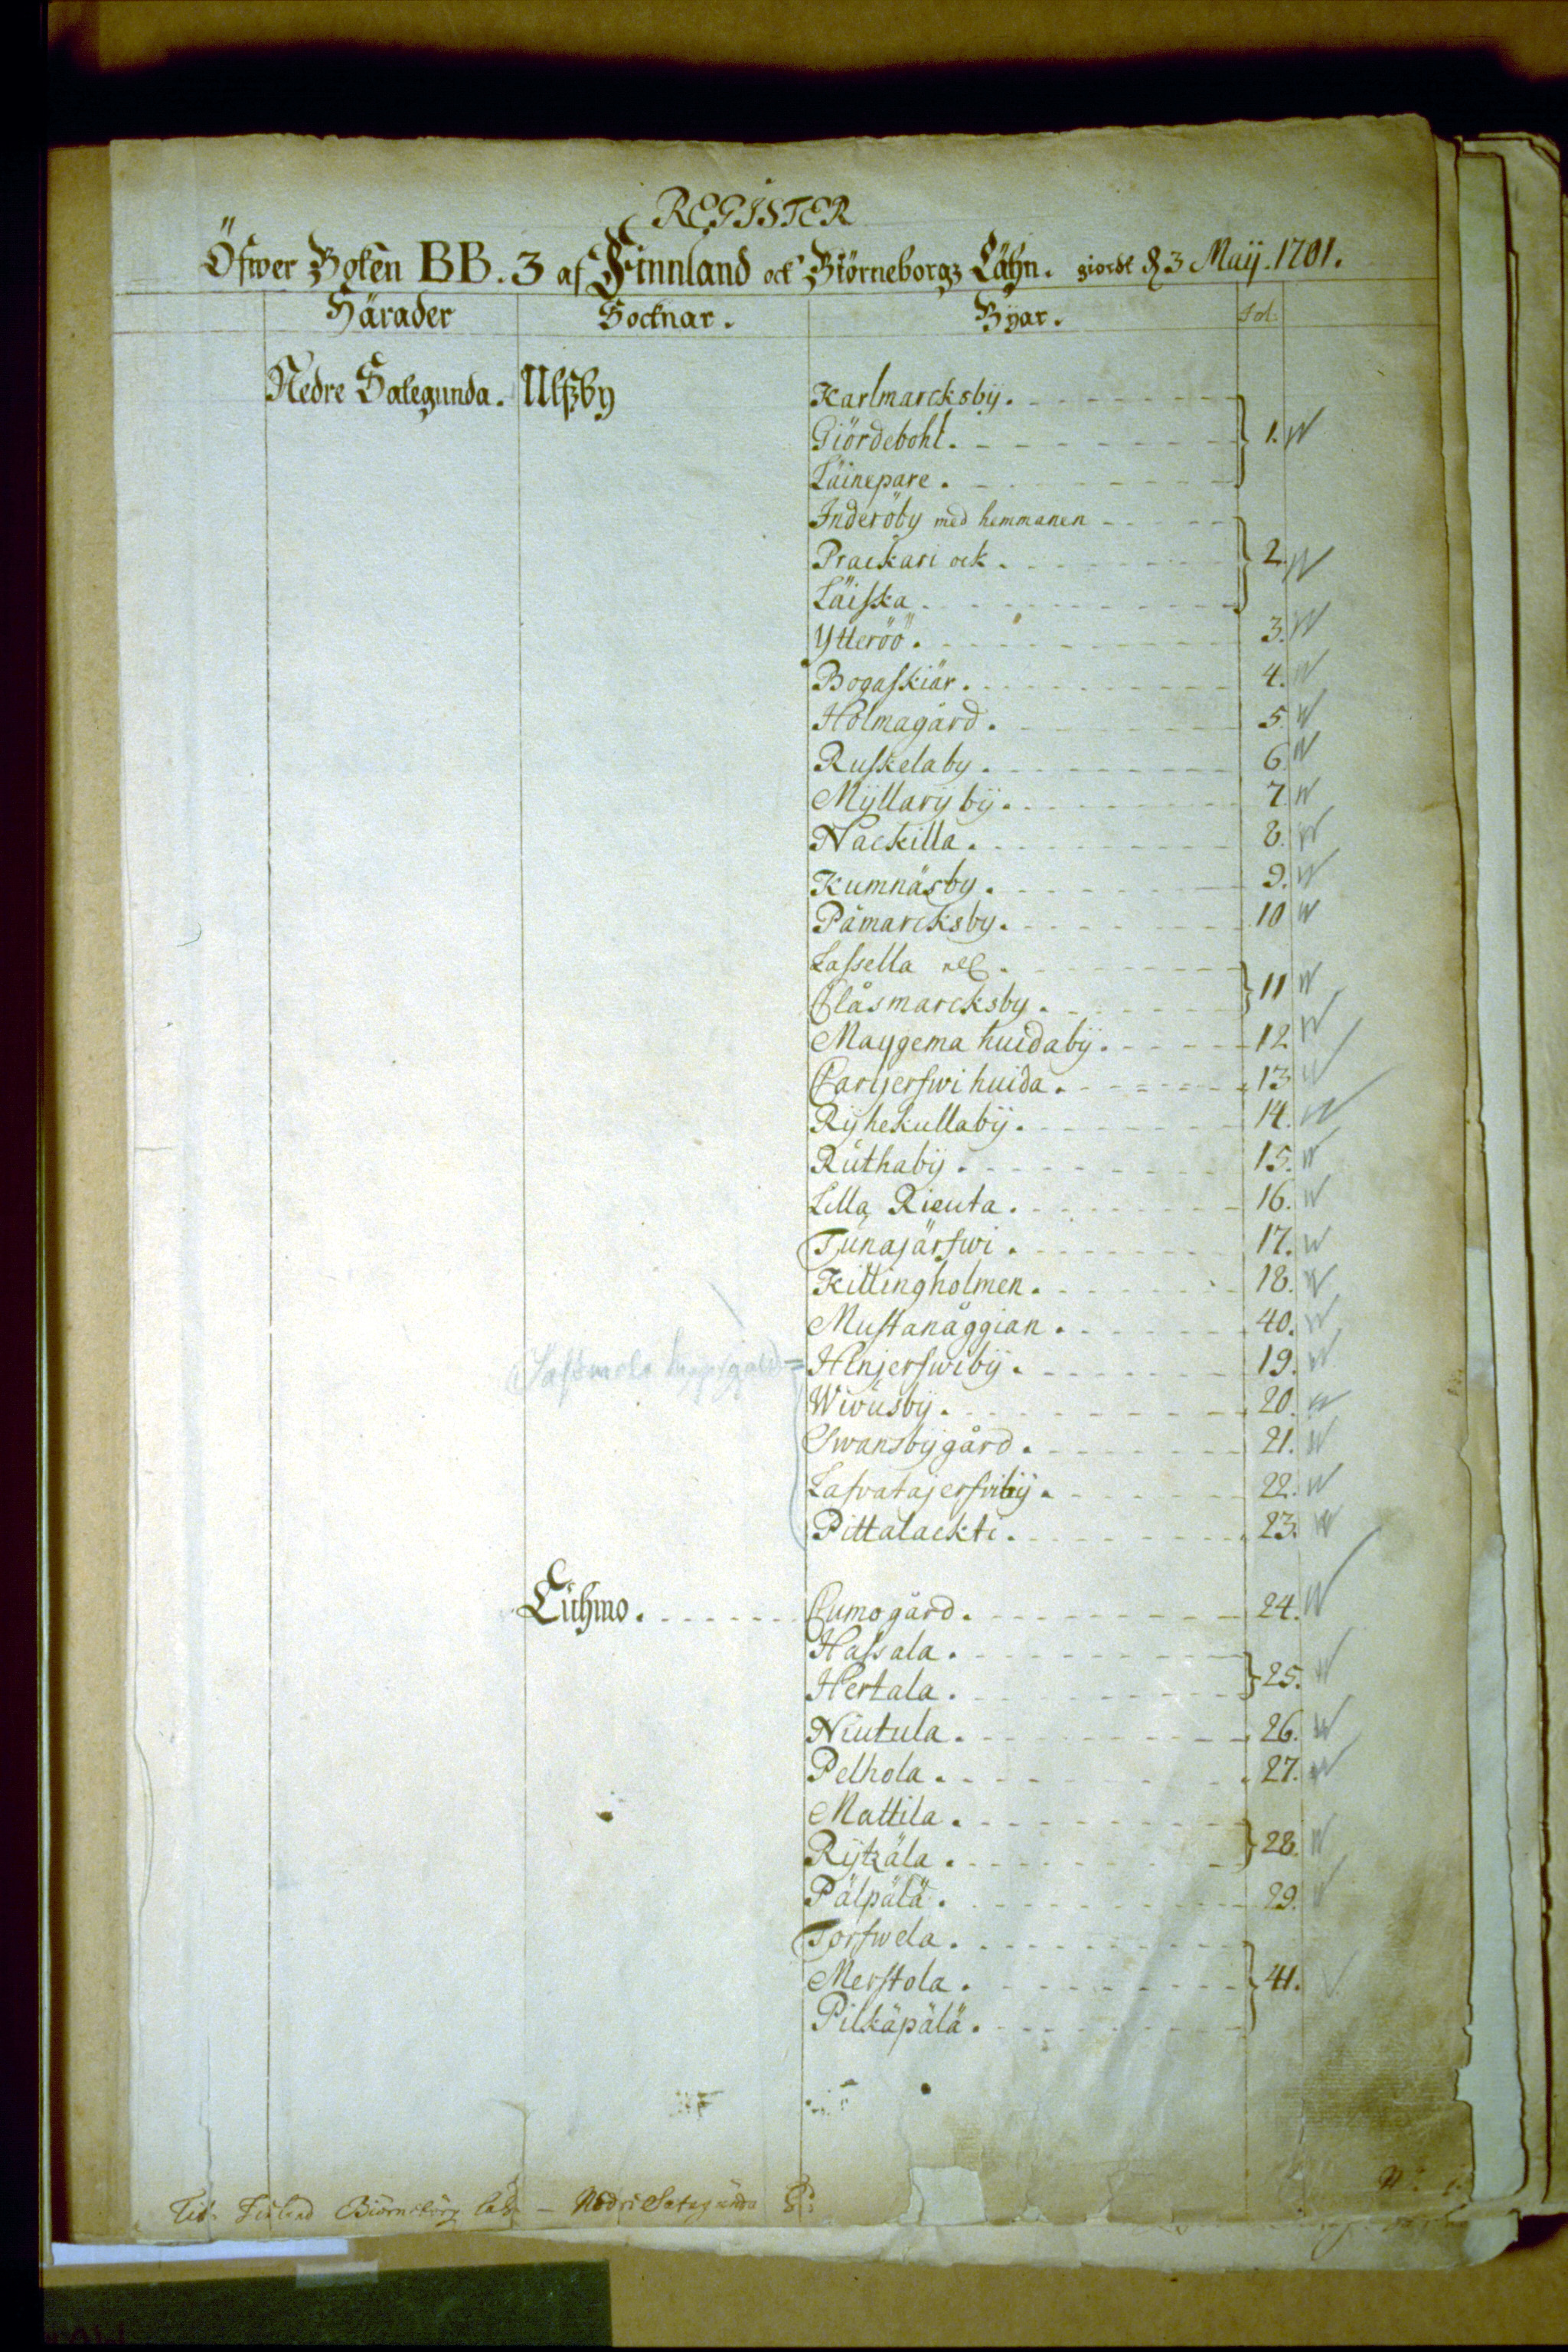 REGISTER
Öfwer Boken BB. 3 af Finnland ock Biörneborgz Lähn. giordt d 3 Maij. 1701.
Härader Socknar. Byar. Fol:
Nedre Sategunda. Ulfzby Karlmarcksbÿ.
Giördebohl. 1.
Läinepare.
Inderöby med hemmanen
Prackari ock 2.
Läiska
Ytteröö. 3.
Bogaskiär. 4.
Holmagård. 5.
Ruskelaby. 6.
Mÿllarÿ bÿ. 7.
Nackilla. 8.
Kumnäsby. 9.
Påmarcksby. 10
Lassella
Clåsmarcksby. 11
Maygema huidabÿ. 12
Carijerfwi huida. 13
Rÿhekullabÿ. 14.
Ruthabÿ. 15.
Lilla Rieuta. 16.
Tunajärfwi. 17.
Kittingholmen. 18.
Mustanåggian. 40.
= Henjerfwibÿ. 19.
Wiwusbÿ. 20.
Swansbÿgård. 21.
Lasvatajerfvibÿ. 22.
Pittalackti. 23.
Cuhmo. Cumogård. 24.
Hassala.
Hertala. 25.
Niutula. 26.
Pelhola. 27.
Mattila.
Rÿtzäla. 28.
Pälpälä. 29.
Torfwela.
Merstola. 41.
Pilkäpälä.
Biörneborg Nedri Satagunda